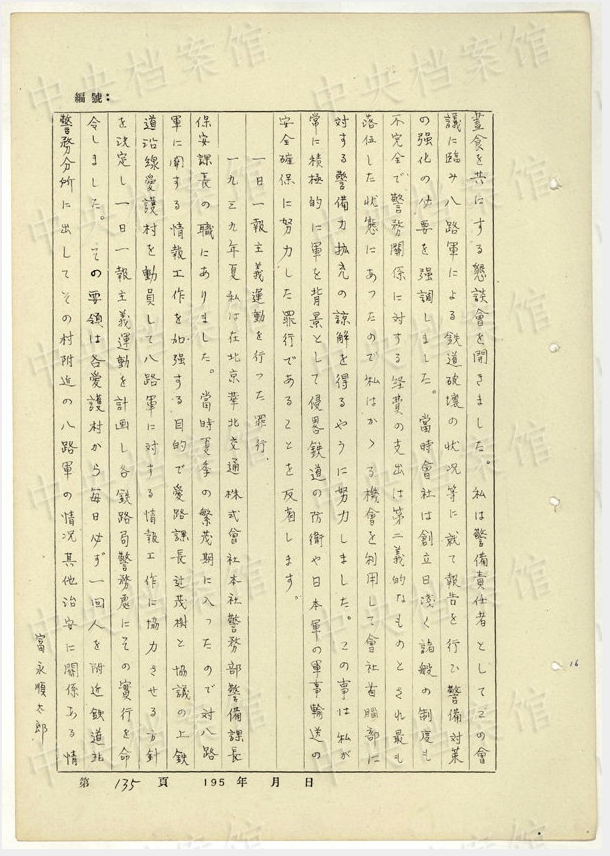 編號:
晝食を共にする懇談會を開きました。私は警備責任者としてこの會
議に臨み八路軍による鉄道破壊の状况等に就て報告を行ひ警備対策
の强化の必要を强調しました。當時會社は創立日浅く諸般の制度も
不完全で警務関係に対する経費の支出は第二義的なものとされ最も
落伍した状態にあったので私はかゝる機會を利用して會社首脳部に
対する警備力拡充の諒解を得るやうに努力しました。この事は私が
常に積極的に軍を背景として侵畧鉄道の防衛や日本軍の軍事輸送の
安全確保に努力した罪行であることを反省します。
一日一報主義運動を行った罪行、
一九三九年夏私は在北京華北交通株式會社本社警務部警備課長
保安課長の職にありました。當時夏季の繁茂期に入ったので対八路
軍に関する情報工作を加强する目的で愛路課長辻茂樹と協議の上鉄
道沿線愛護村を動員して八路軍に対する情報工作に協力させる方針
を決定し一日一報主義運動を計画し各鉄路局警務處にその實行を命
令しました。その要領は各愛護村から毎日必ず一回人を附近鉄道
警務分所に出してその村附近の八路軍の情况其他治安に関係ある情
富永順太郎
第 135 頁 195 年 月 日
16
中央档案馆